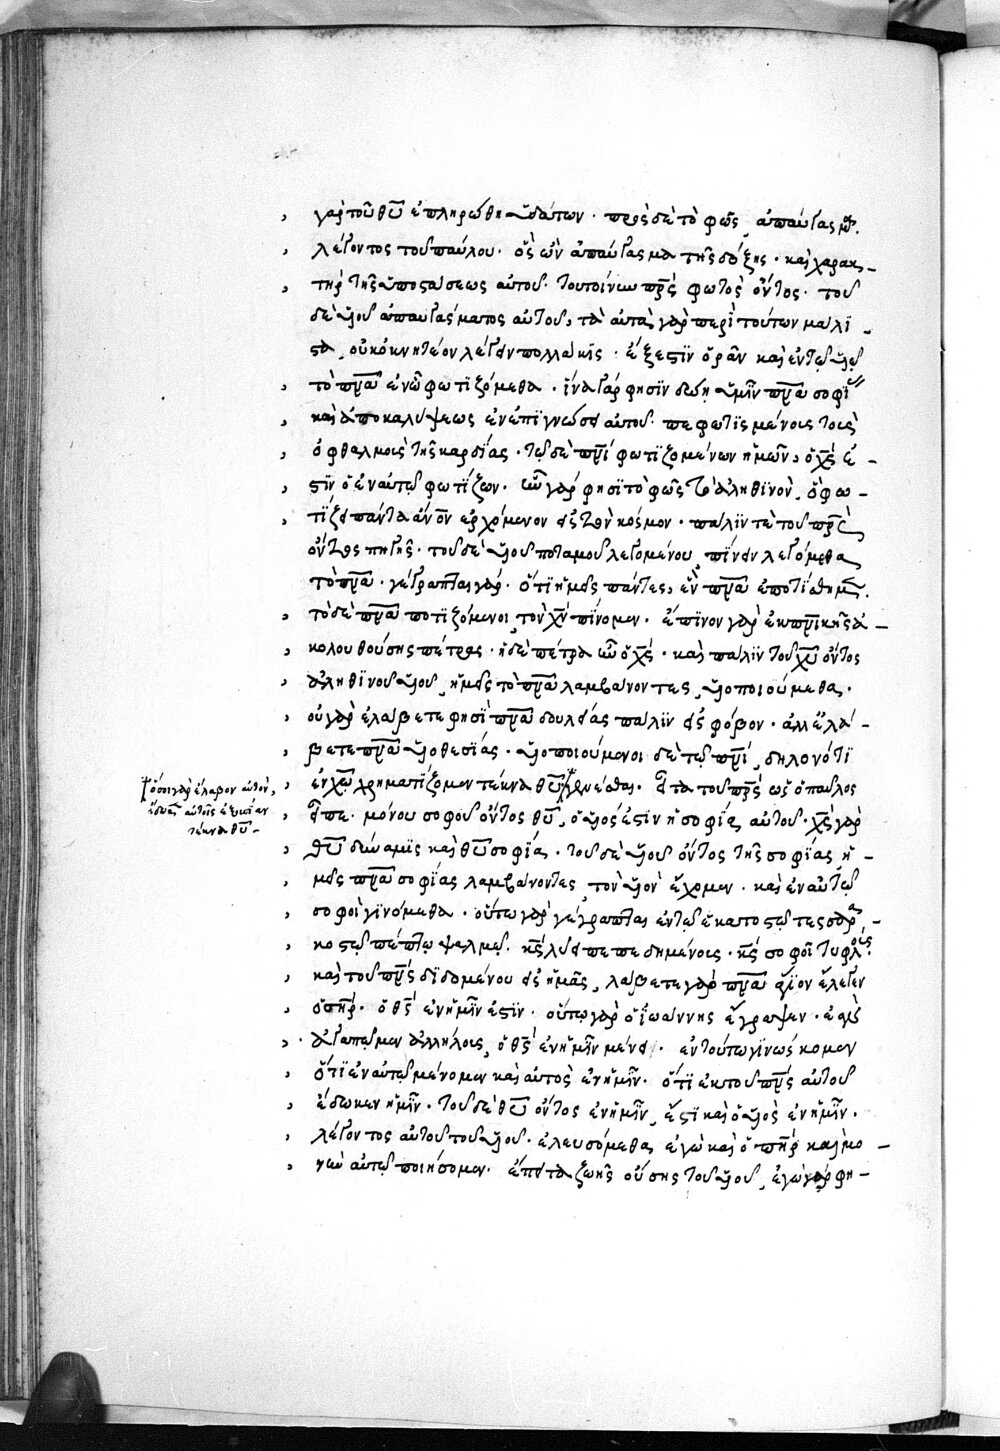 γὰρ τοῦ θῦ ἐπληρώθη ὑδάτων · πρὸς δὲ τὸ φῶς, ἀπαύγασμα.
λέγοντος τοῦ παύλου · ὃς ὢν ἀπαύγασμα τῆς δόξης · καὶ χαρακ-
τὴρ τῆς ὑποστάσεως αὐτοῦ · τοῦ τοίνυν πρς φωτὸς ὄντος · τοῦ
δὲ υἱοῦ ἀπαυγάσματος αὐτοῦ, τὰ αὐτὰ γὰρ περὶ τούτων μάλι-
στα, οὐκ ὀκνητέον λέγειν πολλάκις · ἔξεστϊν ὁρᾶν καὶ ἐν τῷ υἱῷ
τὸ πνᾶ ἐν ᾧ φωτϊζόμεθα · ἵνα γάρ φησϊν δώῃ ὑμῖν πνᾶ σοφί
καὶ ἀποκαλύψεως ἐν ἐπϊγνώσει αὐτοῦ · πεφωτϊσμένοις τοὺς
ὀφθαλμοὺς τῆς καρδίας · τῷ δὲ πνϊ φωτϊζομένων ἡμῶν, ὁ χς ἐ-
στϊν ὁ ἐν αὐτῷ φωτίζων · ἦν γάρ φησϊ τὸ φῶς τὸ ἀληθϊνὸν, ὃ φω-
τΐζει πάντα ἄνον ἐρχόμενον εἰς τὸν κόσμον · πάλϊν τὲ τοῦ πρς
ὄντος πηγῆς · τοῦ δὲ υἱοῦ ποταμοῦ λεγομένου, πίνειν λεγόμεθα
τὸ πνᾶ · γέγραπται γάρ · ὅτϊ ἡμεῖς πάντες, ἓν πνᾶ ἐποτίσθημεν.
τὸ δὲ πνᾶ ποτϊζόμενοι, τὸν χν πίνομεν · ἔπινον γὰρ ἐκ πνϊκῆς ἀ-
κολουθούσης πέτρας · ἡ δὲ πέτρα ἦν ὁ χς · καὶ πάλϊν τοῦ χῦ ὄντος
ἀληθϊνοῦ υἱοῦ, ἡμεῖς τὸ πνᾶ λαμβάνοντες, υἱοποιούμεθα.
οὐ γὰρ ἐλάβετε φησὶ πνᾶ δουλείας πάλϊν εἰς φόβον · ἀλλ' ἐλά-
βετε πνᾶ υἱοθεσίας · υἱοποιούμενοι δὲ τῷ πνϊ, δηλονότϊ
ἐν χῶ χρηματίζομεν τέκνα θῦ γενέσθαι · εἶτα τοῦ πρς ὡς ὁ παῦλος
εἶπε · μόνου σοφοῦ ὄντος θῦ, ὁ υἱός ἐστϊν ἡ σοφία αὐτοῦ · χς γὰρ
θῦ δύναμϊς καὶ θῦ σοφία · τοῦ δὲ υἱοῦ ὄντος τῆς σοφίας, ἡ-
μεῖς πνᾶ σοφΐας λαμβάνοντες, τὸν υἱὸν ἔχομεν · καὶ ἐν αὐτῷ
σοφοὶ γϊνόμεθα · οὕτω γὰρ γέγραπται ἐν τῷ ἑκατοστῷ τεσσαρα-
κοστῷ πέμπτῳ ψαλμῷ · κς λύει πεπεδημένους · κς σοφοῖ τυφλούς.
καὶ τοῦ πνς δϊδομένου εἰς ἡμᾶς, λάβετε γὰρ πνᾶ ἅγϊον ἔλεγεν
ὁ σηρ · ὁ θς ἐν ἡμῖν ἐστϊν · οὕτω γὰρ ὁ ἰωάννης ἔγραψεν · ἐὰν
ἀγαπῶμεν ἀλλήλους, ὁ θς ἐν ἡμῖν μένει · ἐν τούτω γϊνώσκομεν
ὅτϊ ἐν αὐτῷ μένομεν καὶ αὐτὸς ἐν ἡμῖν · ὅτϊ ἐκ τοῦ πνς αὐτοῦ
ἔδωκεν ἡμῖν · τοῦ δὲ θῦ ὄντος ἐν ἡμῖν, ἔστϊ καὶ ὁ υἱὸς ἐν ἡμῖν ·
λέγοντος αὐτοῦ τοῦ υἱοῦ · ἐλευσόμεθα, ἐγὼ καὶ ὁ πηρ καὶ μο-
νὴν αὐτῷ ποιήσομεν · ἔπειτα ζωῆς οὔσης τοῦ υἱοῦ, ἐγὼ γὰρ φη-
ὅσοι γὰρ ἔλαβον αὐτὸν,
ἔδωκεν αὐτοῖς ἐξουσίαν
τέκνα θῦ -